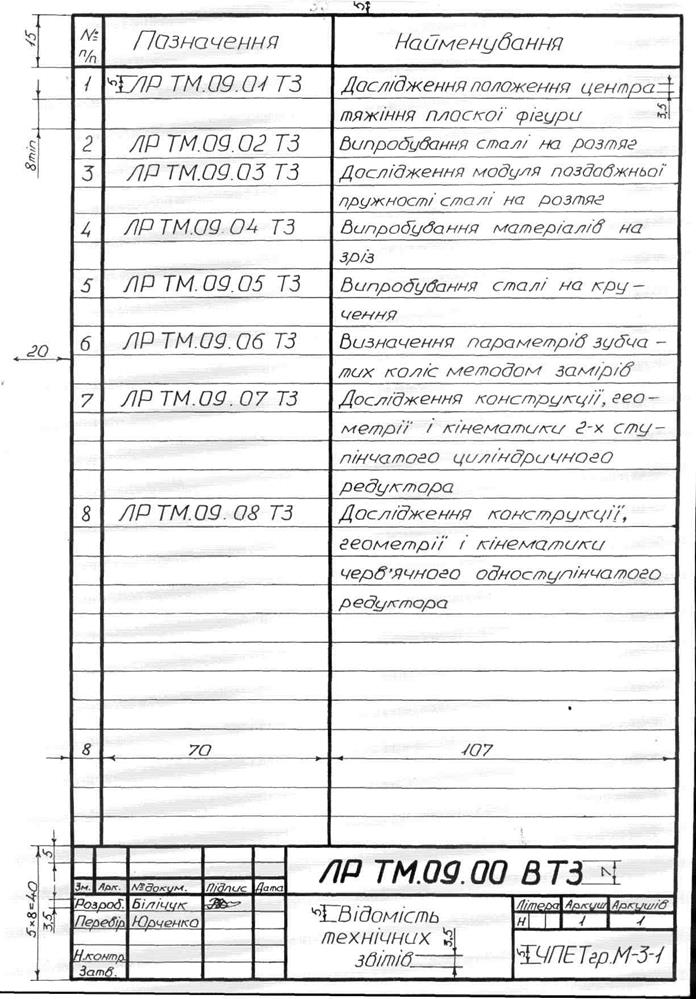 5
15
№ п/п Позначення Найменування
1 5 ЛР ТМ.09.01 ТЗ Дослідження положення центра
тяжіння плоскої фігури 3,5
8min
2 ЛР ТМ.09.02 ТЗ Випробування сталі на розтяг
3 ЛР ТМ.09.03 ТЗ Дослідження модуля поздовжньої
пружності сталі на розтяг
4 ЛР ТМ.09.04 ТЗ Випробування матеріалів на
зріз
5 ЛР ТМ.09.05 ТЗ Випробування сталі на кру-
чення
6 ЛР ТМ.09.06 ТЗ Визначення параметрів зубча-
20
тих коліс методом замірів
7 ЛР ТМ.09.07 ТЗ Дослідження конструкції, гео-
метрії і кінематики 2-х сту-
пінчатого циліндричного
редуктора
8 ЛР ТМ.09.08 ТЗ Дослідження конструкції,
геометрії і кінематики
черв'ячного одноступінчатого
редуктора
8 70 107
5
5×8=40
3,5
ЛР ТМ.09.00 ВТЗ 7
Зм. Арк. №докум. Підпис Дата
Розроб. Білічук
Перевір Юрченко
Н.контр
Затв.
5 Відомість
технічних
звітів 3,5
Літера Аркуш Аркушів
Н 1 1
5 ЧПЕТ гр.М-3-1